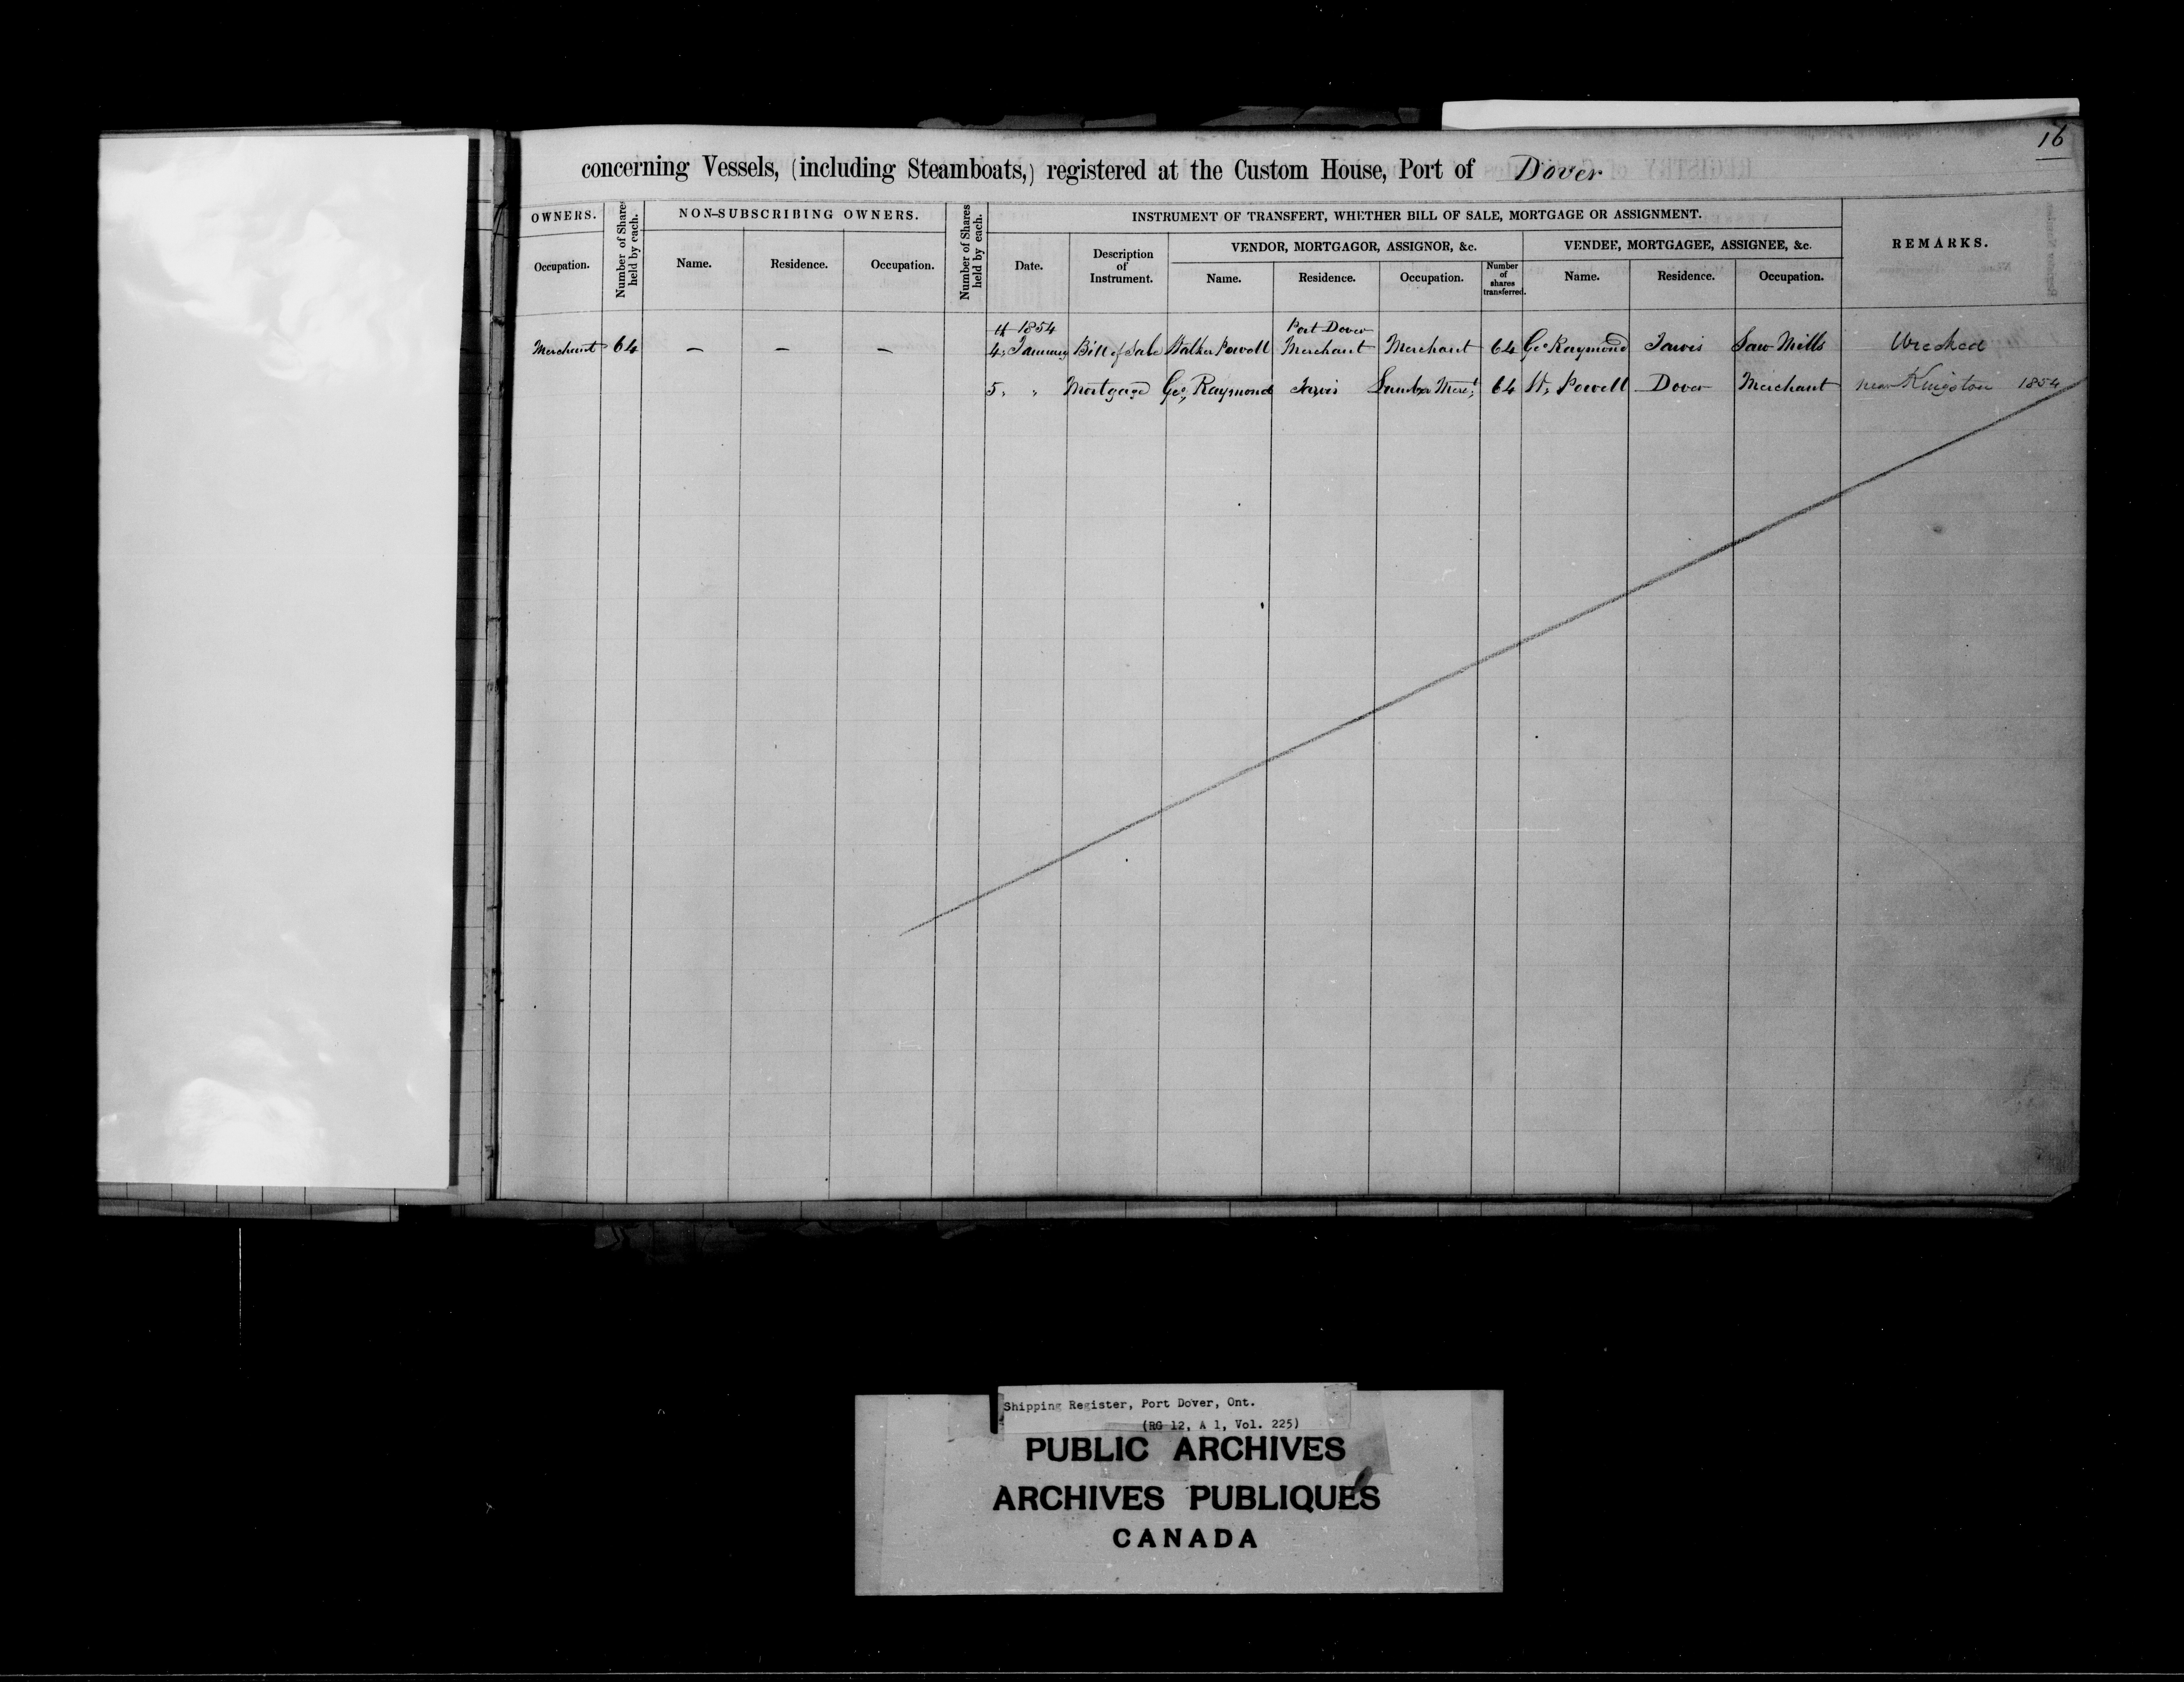 16
concerning Vessels, (including Steamboats,) registered at the Custom House, Port of Dover
OWNERS. Number of Shares held by each. NON-SUBSCRIBING OWNERS. Number of Shares held by each. INSTRUMENT OF TRANSFERT, WHETHER BILL OF SALE, MORTGAGE OR ASSIGNMENT. REMARKS.
VENDOR, MORTGAGOR, ASSIGNOR, &c. VENDEE, MORTGAGEE, ASSIGNEE, &c.
Occupation. Name. Residence. Occupation. Date. Description of Instrument. Name. Residence. Occupation. Number of shares transferred. Name. Residence. Occupation.
1854 Port Dover
Merchant 64 – – – 4, January Bill of Sale Walker Powell Merchant Merchant 64 Geo Raymond Jarvis Saw Mills Wrecked
5, " Mortgage Geo, Raymond Jarvis Lumber Merct, 64 W, Powell Dover Merchant near Kingston 1854
Shipping Register, Port Dover, Ont.
(RG 12, A 1, Vol. 225)
PUBLIC ARCHIVES
ARCHIVES PUBLIQUES
CANADA